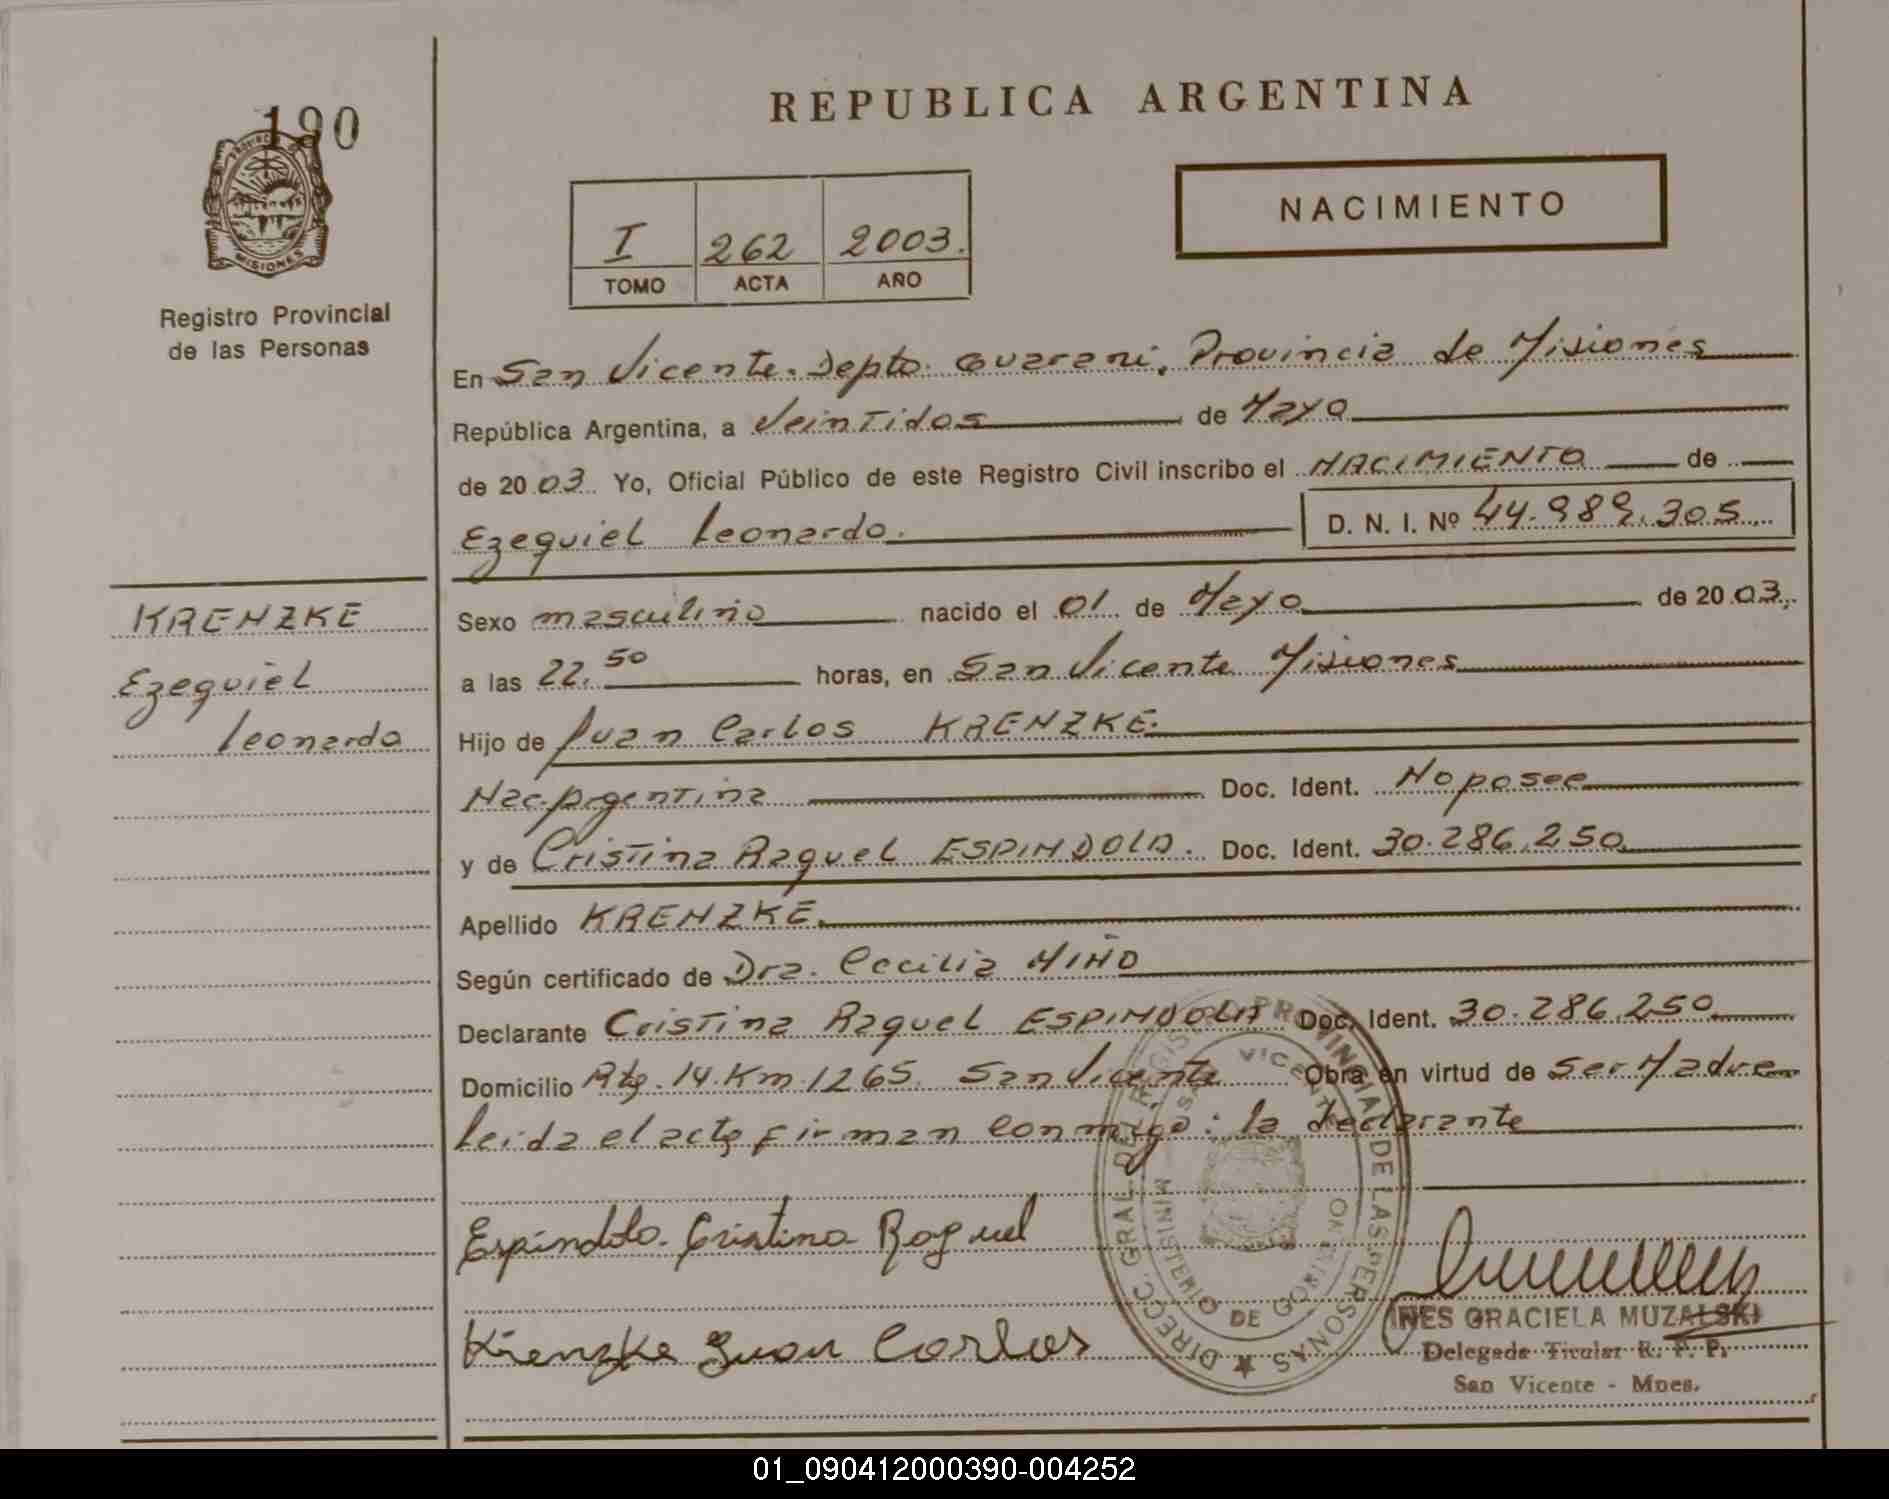 190
REPUBLICA ARGENTINA
PROVINCIA
MISIONES
Registro Provincial
de las Personas
I 262 2003.
TOMO ACTA AÑO
NACIMIENTO
En San Vicente. Depto. Guarani, Provincia de Misiones
República Argentina, a Veintidos de Mayo
de 2003 Yo, Oficial Público de este Registro Civil inscribo el NACIMIENTO de
Ezequiel Leonardo. D. N. I. Nº 44.989.305
KRENZKE
Ezequiel
Leonardo
Sexo masculino nacido el 01 de Mayo de 2003.
a las 22.50 horas, en San Vicente Misiones
Hijo de Juan Carlos KRENZKE.
Nac. Argentina Doc. Ident. No posee
y de Cristina Raquel ESPINDOLA. Doc. Ident. 30.286.250
Apellido KRENZKE.
Según certificado de Dra. Cecilia MIÑO
Declarante Cristina Raquel ESPINDOLA Doc. Ident. 30.286.250
Domicilio Rta. 14. Km. 1265. San Vicente Obra en virtud de Ser Madre
leida el acta firman conmigo: la declarante
Espindola Cristina Raquel
Krenzke Juan Carlos
DIRECC. GRAL. DEL REGISTRO PROVINCIAL DE LAS PERSONAS
SAN VICENTE
MINISTERIO DE GOBIERNO
INES GRACIELA MUZALSKI
Delegada Titular R. P. P.
San Vicente - Mnes.
01_090412000390-004252